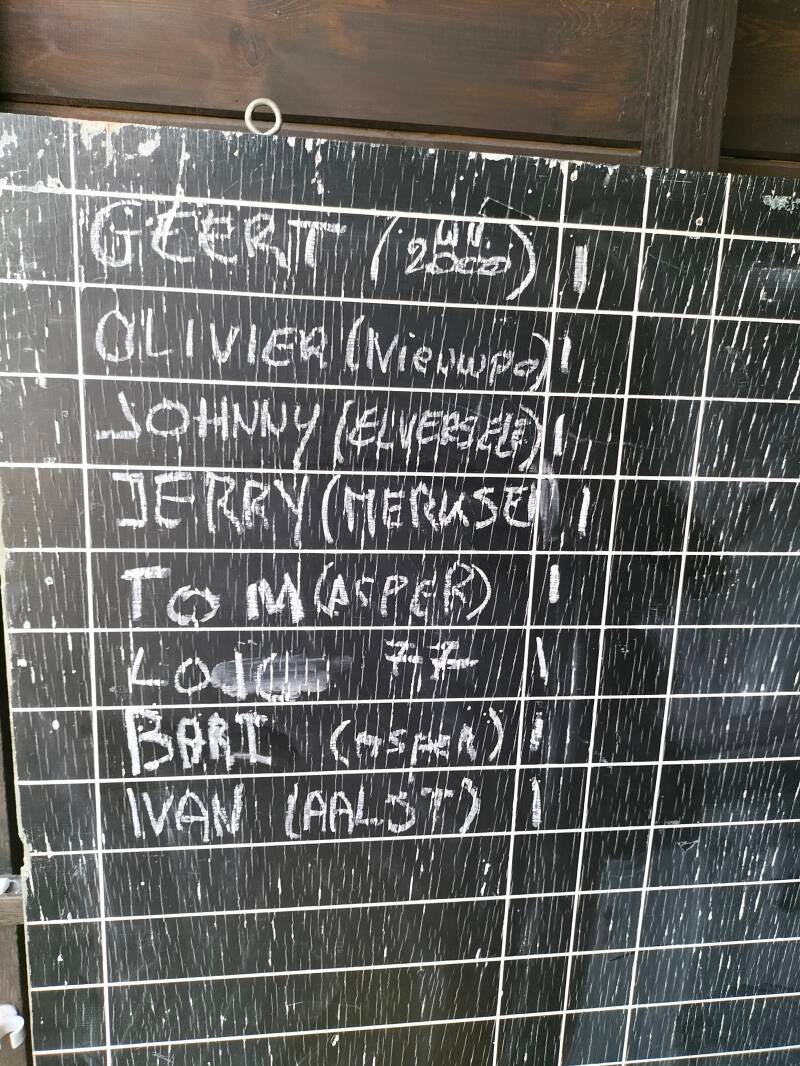 GEERT ( 2000) |
OLIVIER (Nieuwpo) |
JOHNNY (ELVERSELE) |
JERRY (MERKSE) |
TOM (ASPER) |
LOIC 77 |
BART (ASPER) |
IVAN (AALST) |